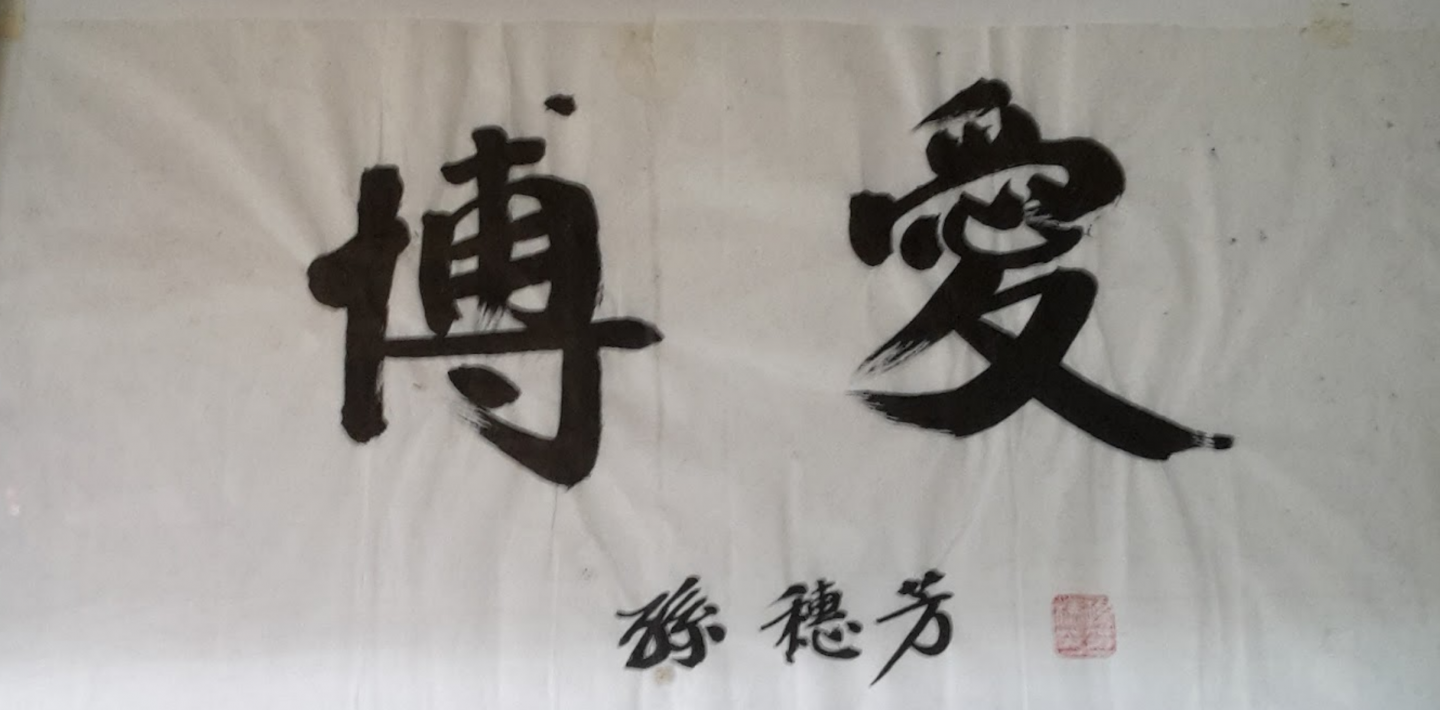 博愛
孫穗芳